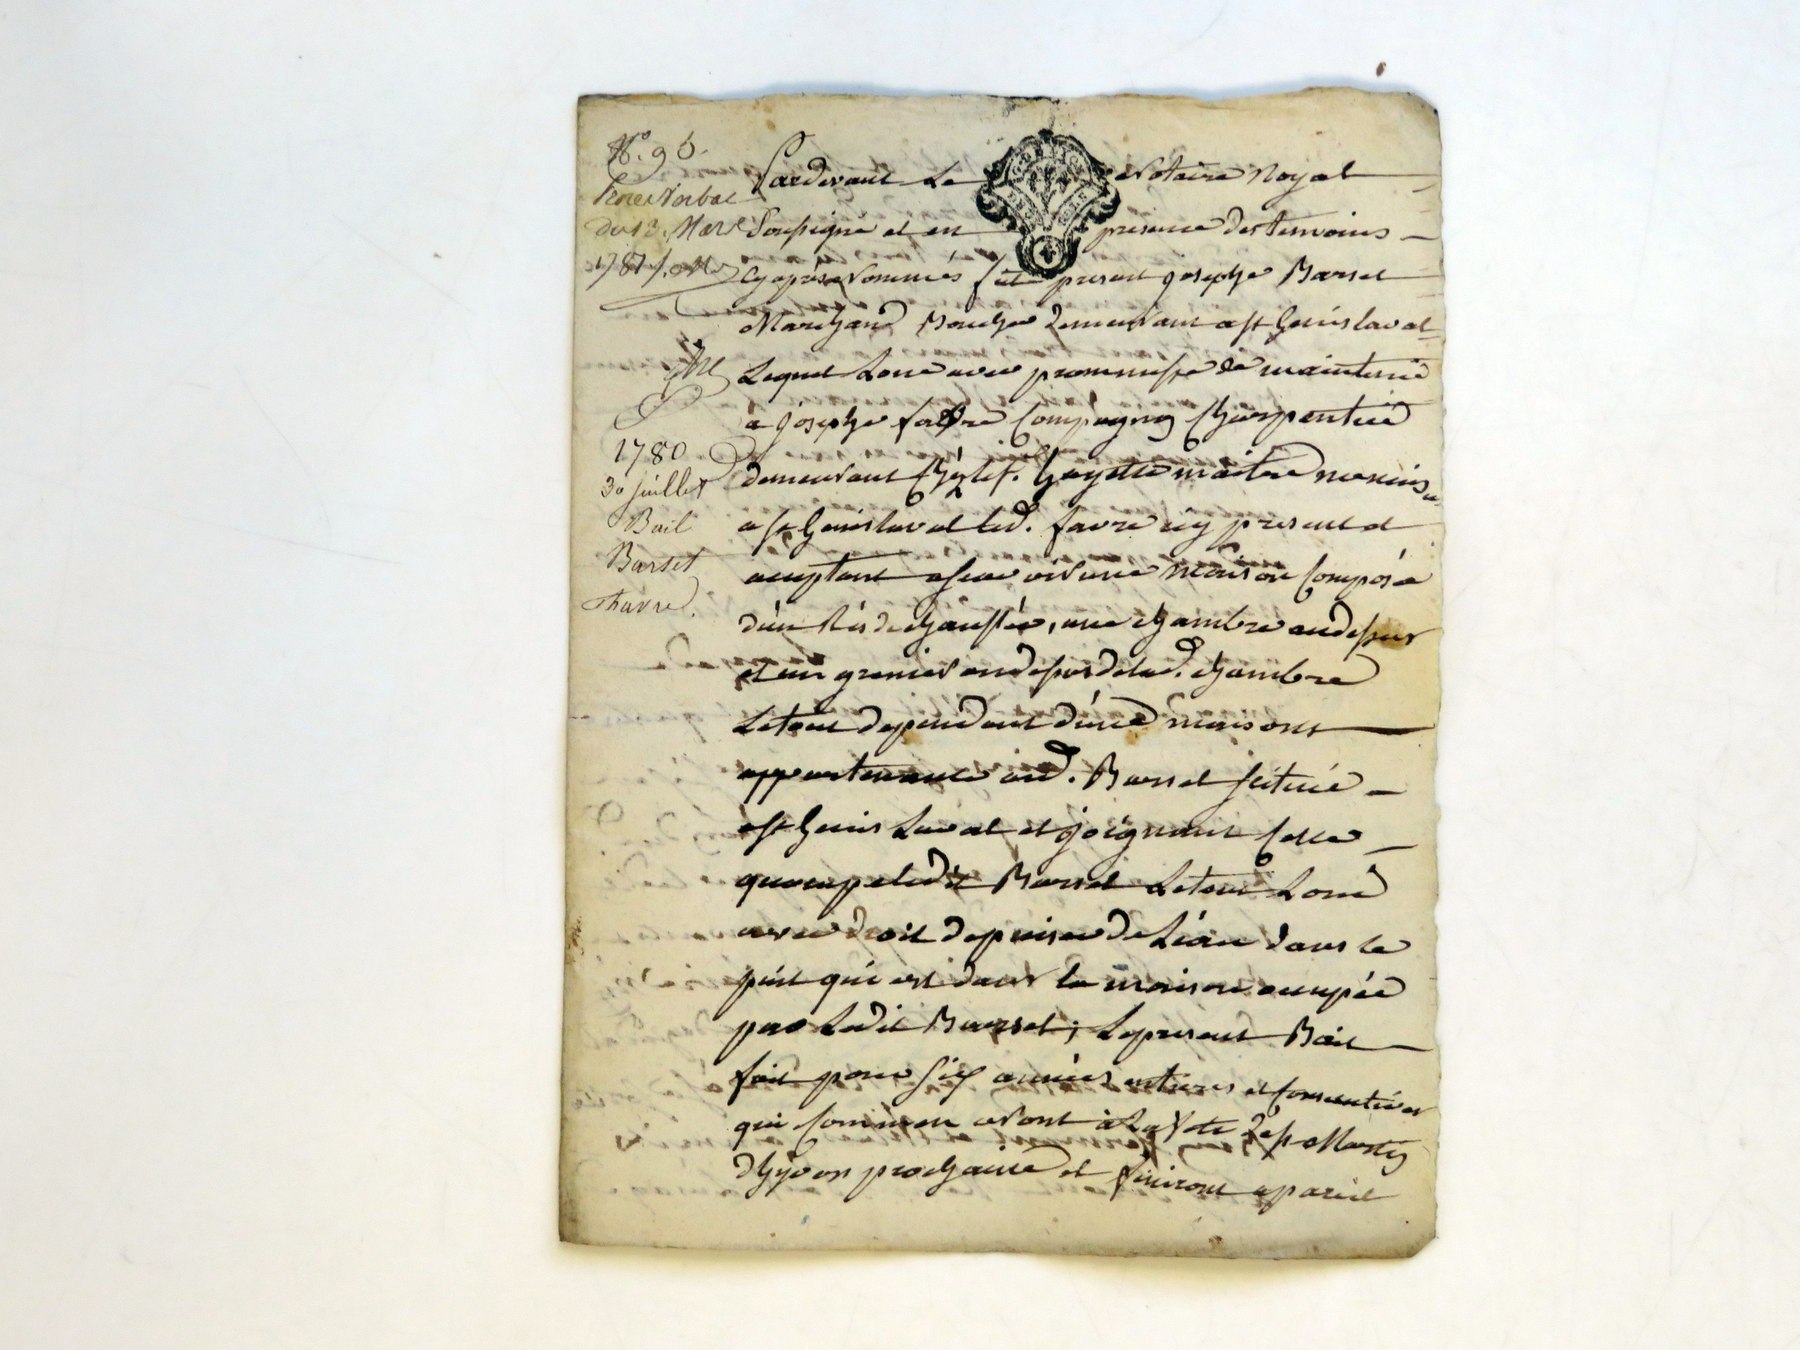 N.° 96.
Procès Verbal
du 13. Mars
1787
1780
30 juillet
Bail
Barset
Favre.
Pardevant Le Notaire Royal
Soussigné et en presence des temoins
cy après Nommés fut present joseph Barset
Marchand Boucher demeurant a st Genis laval
Lequel Loue avec prommesse de maintenir
a joseph favre Compagnon Charpentier
demeurant chéz le s.r Guyette maitre menuisier
a st Genis laval led. favre icy present et
acceptant asçavoir une maison Composée
d'un Réz de chaussée, une chambre audessus
et un grenier audessus de lad. chambre
Le tout dependant d'une maison
appartenante aud. Barset scituée
a st Genis Laval et joignant Celle
qu'occupe ledit Barset Le tout Loué
avec droit de puiser de L'eau dans le
puit qui est dans la maison occupée
par Ledit Barset; Le present Bail
fait pour six années entieres et consecutives
qui Commenceront à La fete de st Martin
d'hyver prochaine et finiront a pareil